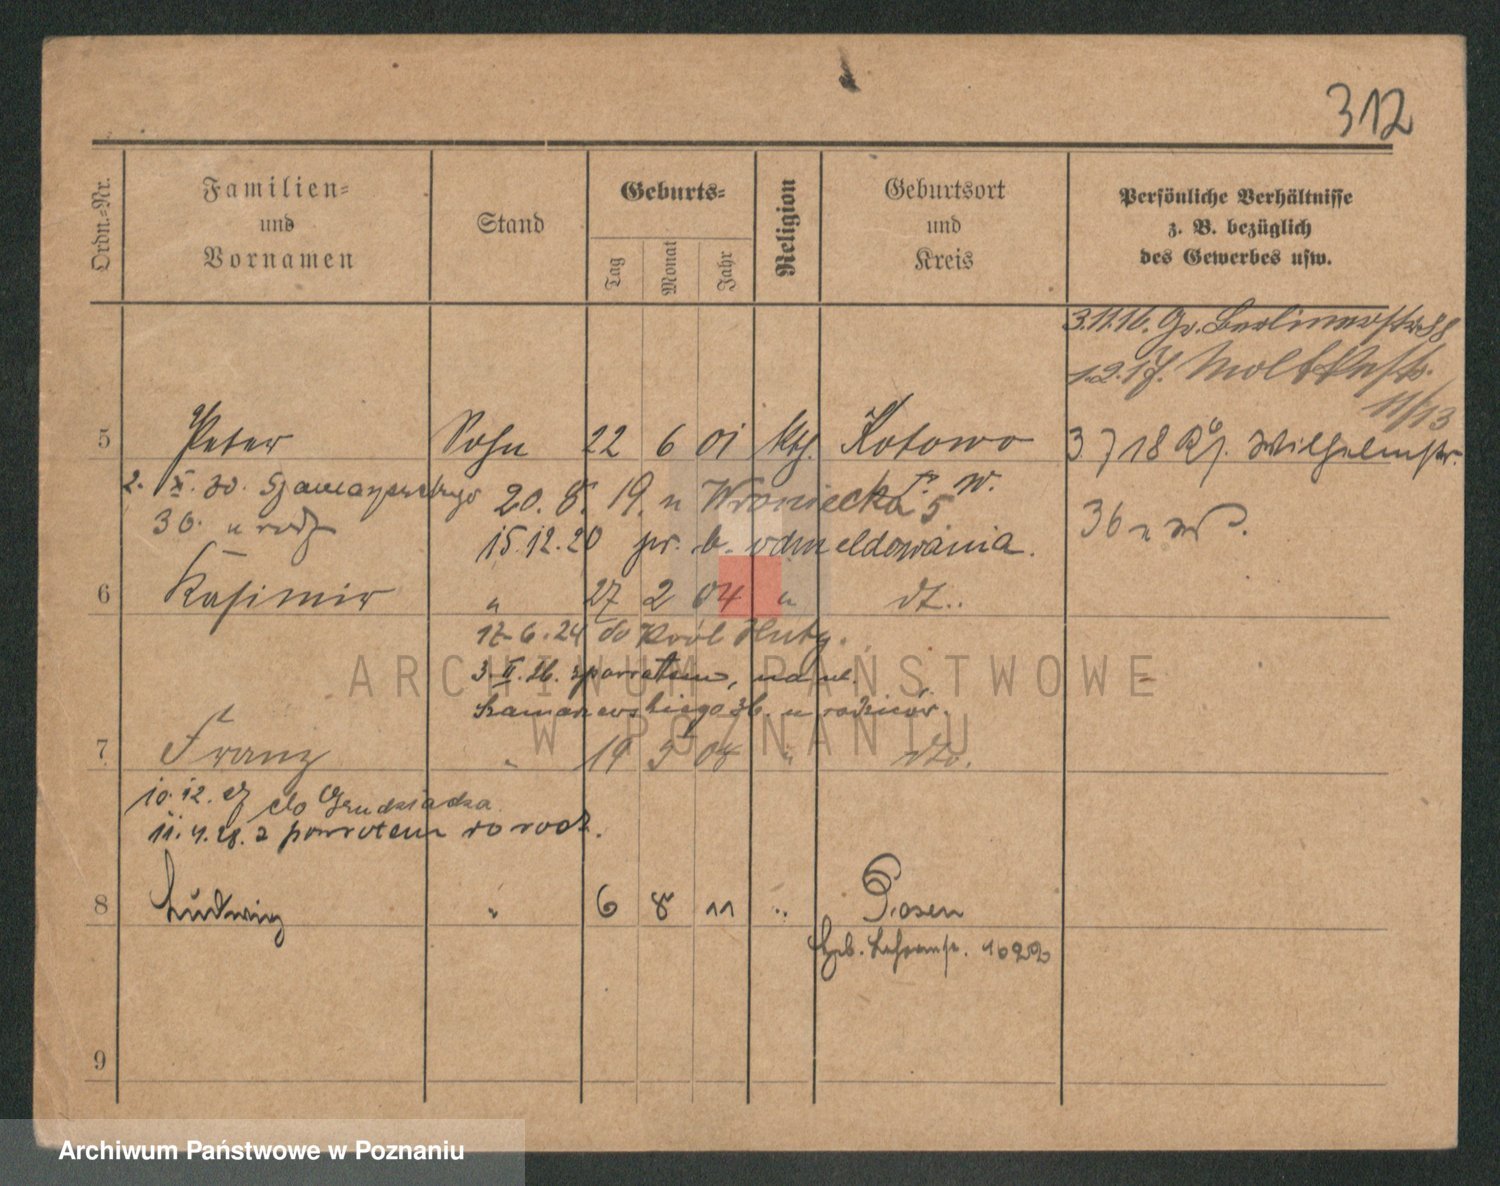 312
Ordn.=Nr.
Familien=
und
Vornamen
Stand
Geburts=
Tag
Monat
Jahr
Religion
Geburtsort
und
Kreis
Persönliche Verhältnisse
z. B. bezüglich
des Gewerbes usw.
3.11.16. Gr. Berlinerstr 88
1.2.17. Moltkestr.
11/13
5 Peter Sohn 22 6 01 kth. Kotowo
3 7 18 Wilhelmstr.
2. X. 30. Szamarzewskiego
36. u rodz
20.8.19. u Wroniecka 5
36
15.12.20 pr. b. odmeldowania.
6 Kasimir " 27 2 04 " dt..
17.6.24 do Król Huty.
3.II.26. z powrotem, na ul.
Szamarzewskiego 36. u rodziców.
7 Franz " 19 9 08 " dto.
10.12.27 do Grudziądza
11.4.28. z powrotem do rodz.
8 Ludwig " 6 8 11 " Posen
Geb. 1622
9
ARCHIWUM PAŃSTWOWE
W POZNANIU
Archiwum Państwowe w Poznaniu